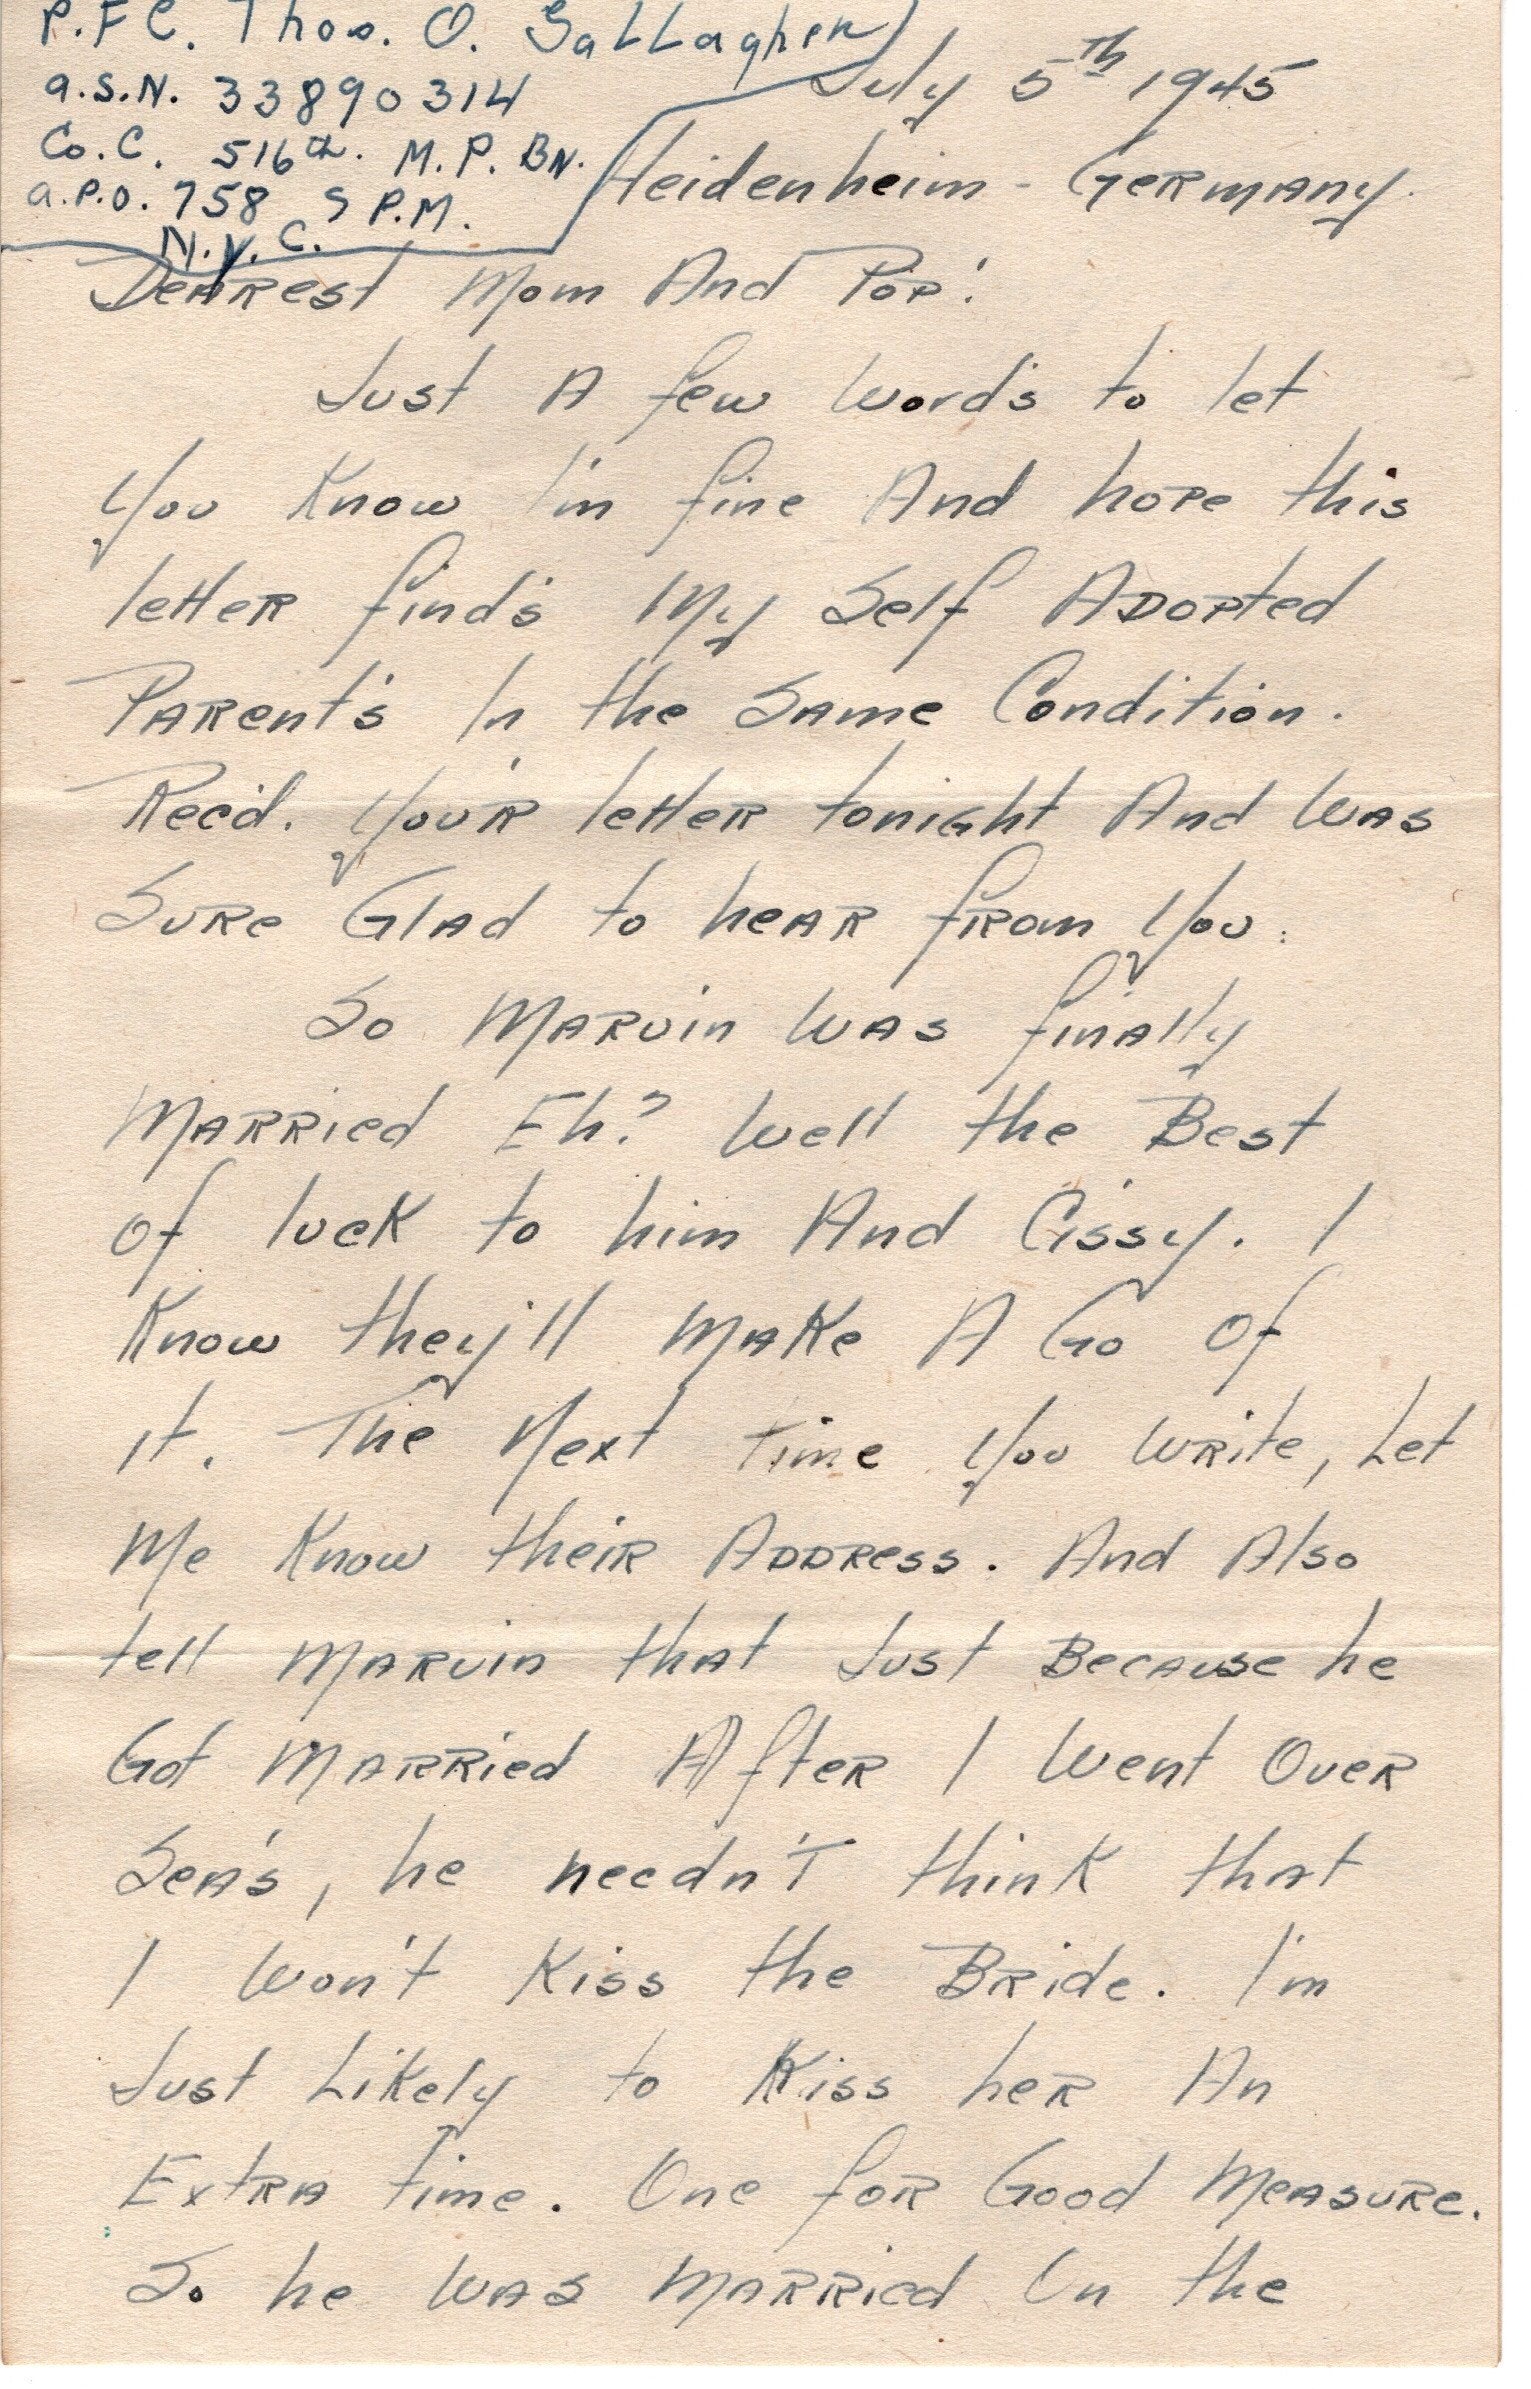 P.F.C. Thos. O. Gallagher
a.s.n. 33890314
Co. C. 516th. M.P. Bn.
a.p.o. 758 % P.M.
N.Y.C.
July 5th 1945
Heidenheim - Germany.
Dearest Mom And Pop:
Just A few word's to let
You Know I'm fine And hope this
letter find's My Self Adopted
Parent's In the Same Condition.
Rec'd. You'r letter tonight And Was
Sure Glad to hear from You.
So Marvin Was finally
Married Eh? Well the Best
Of luck to him And Cissy. I
Know they'll Make A Go Of
it. The Next time You Write, Let
Me Know their Address. And Also
tell Marvin that Just Because he
Got Married After I Went Over
Sea's, he needn't think that
I Won't Kiss the Bride. I'm
Just Likely to Kiss her An
Extra time. One for Good Measure.
So he Was Married On the